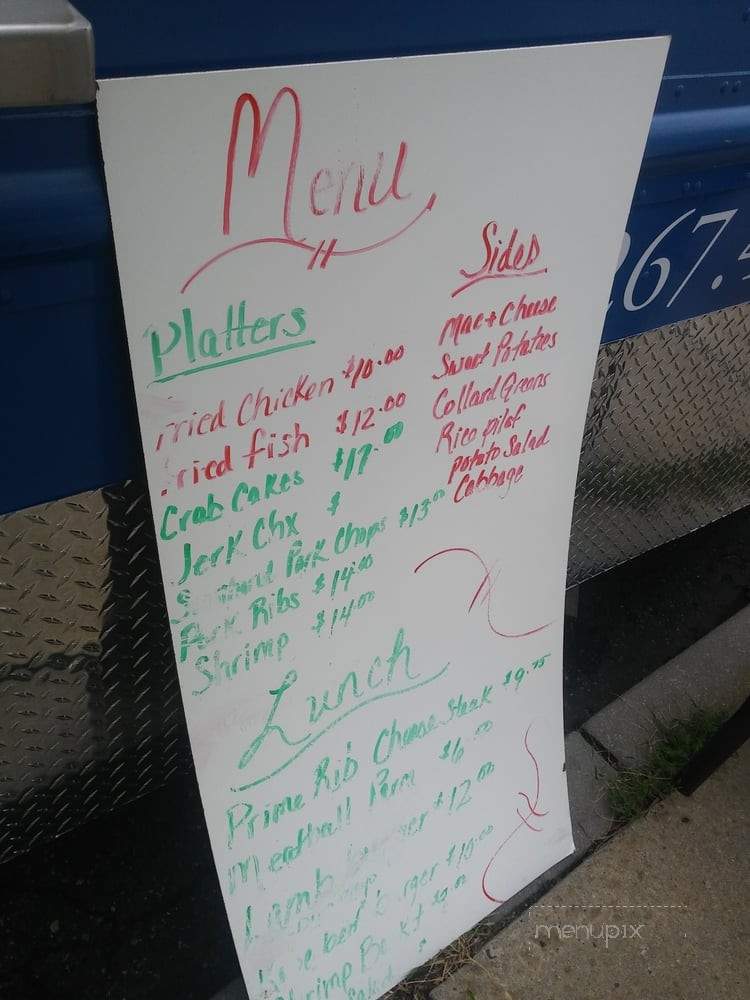 Menu
Platters
Fried Chicken $10.00
Fried fish $12.00
Crab Cakes $17.00
Jerk Chx $
Pork Chops $13.00
Pork Ribs $14.00
Shrimp $14.00
Sides
Mac + Cheese
Sweet Potatoes
Collard Greens
Rice pilaf
Potato Salad
Cabbage
Lunch
Prime Rib Cheese steak $9.75
Meatball Parm $6.00
Lamb burger $12.00
Kobe beef burger $10.00
Shrimp
Salad $
267.
menupix